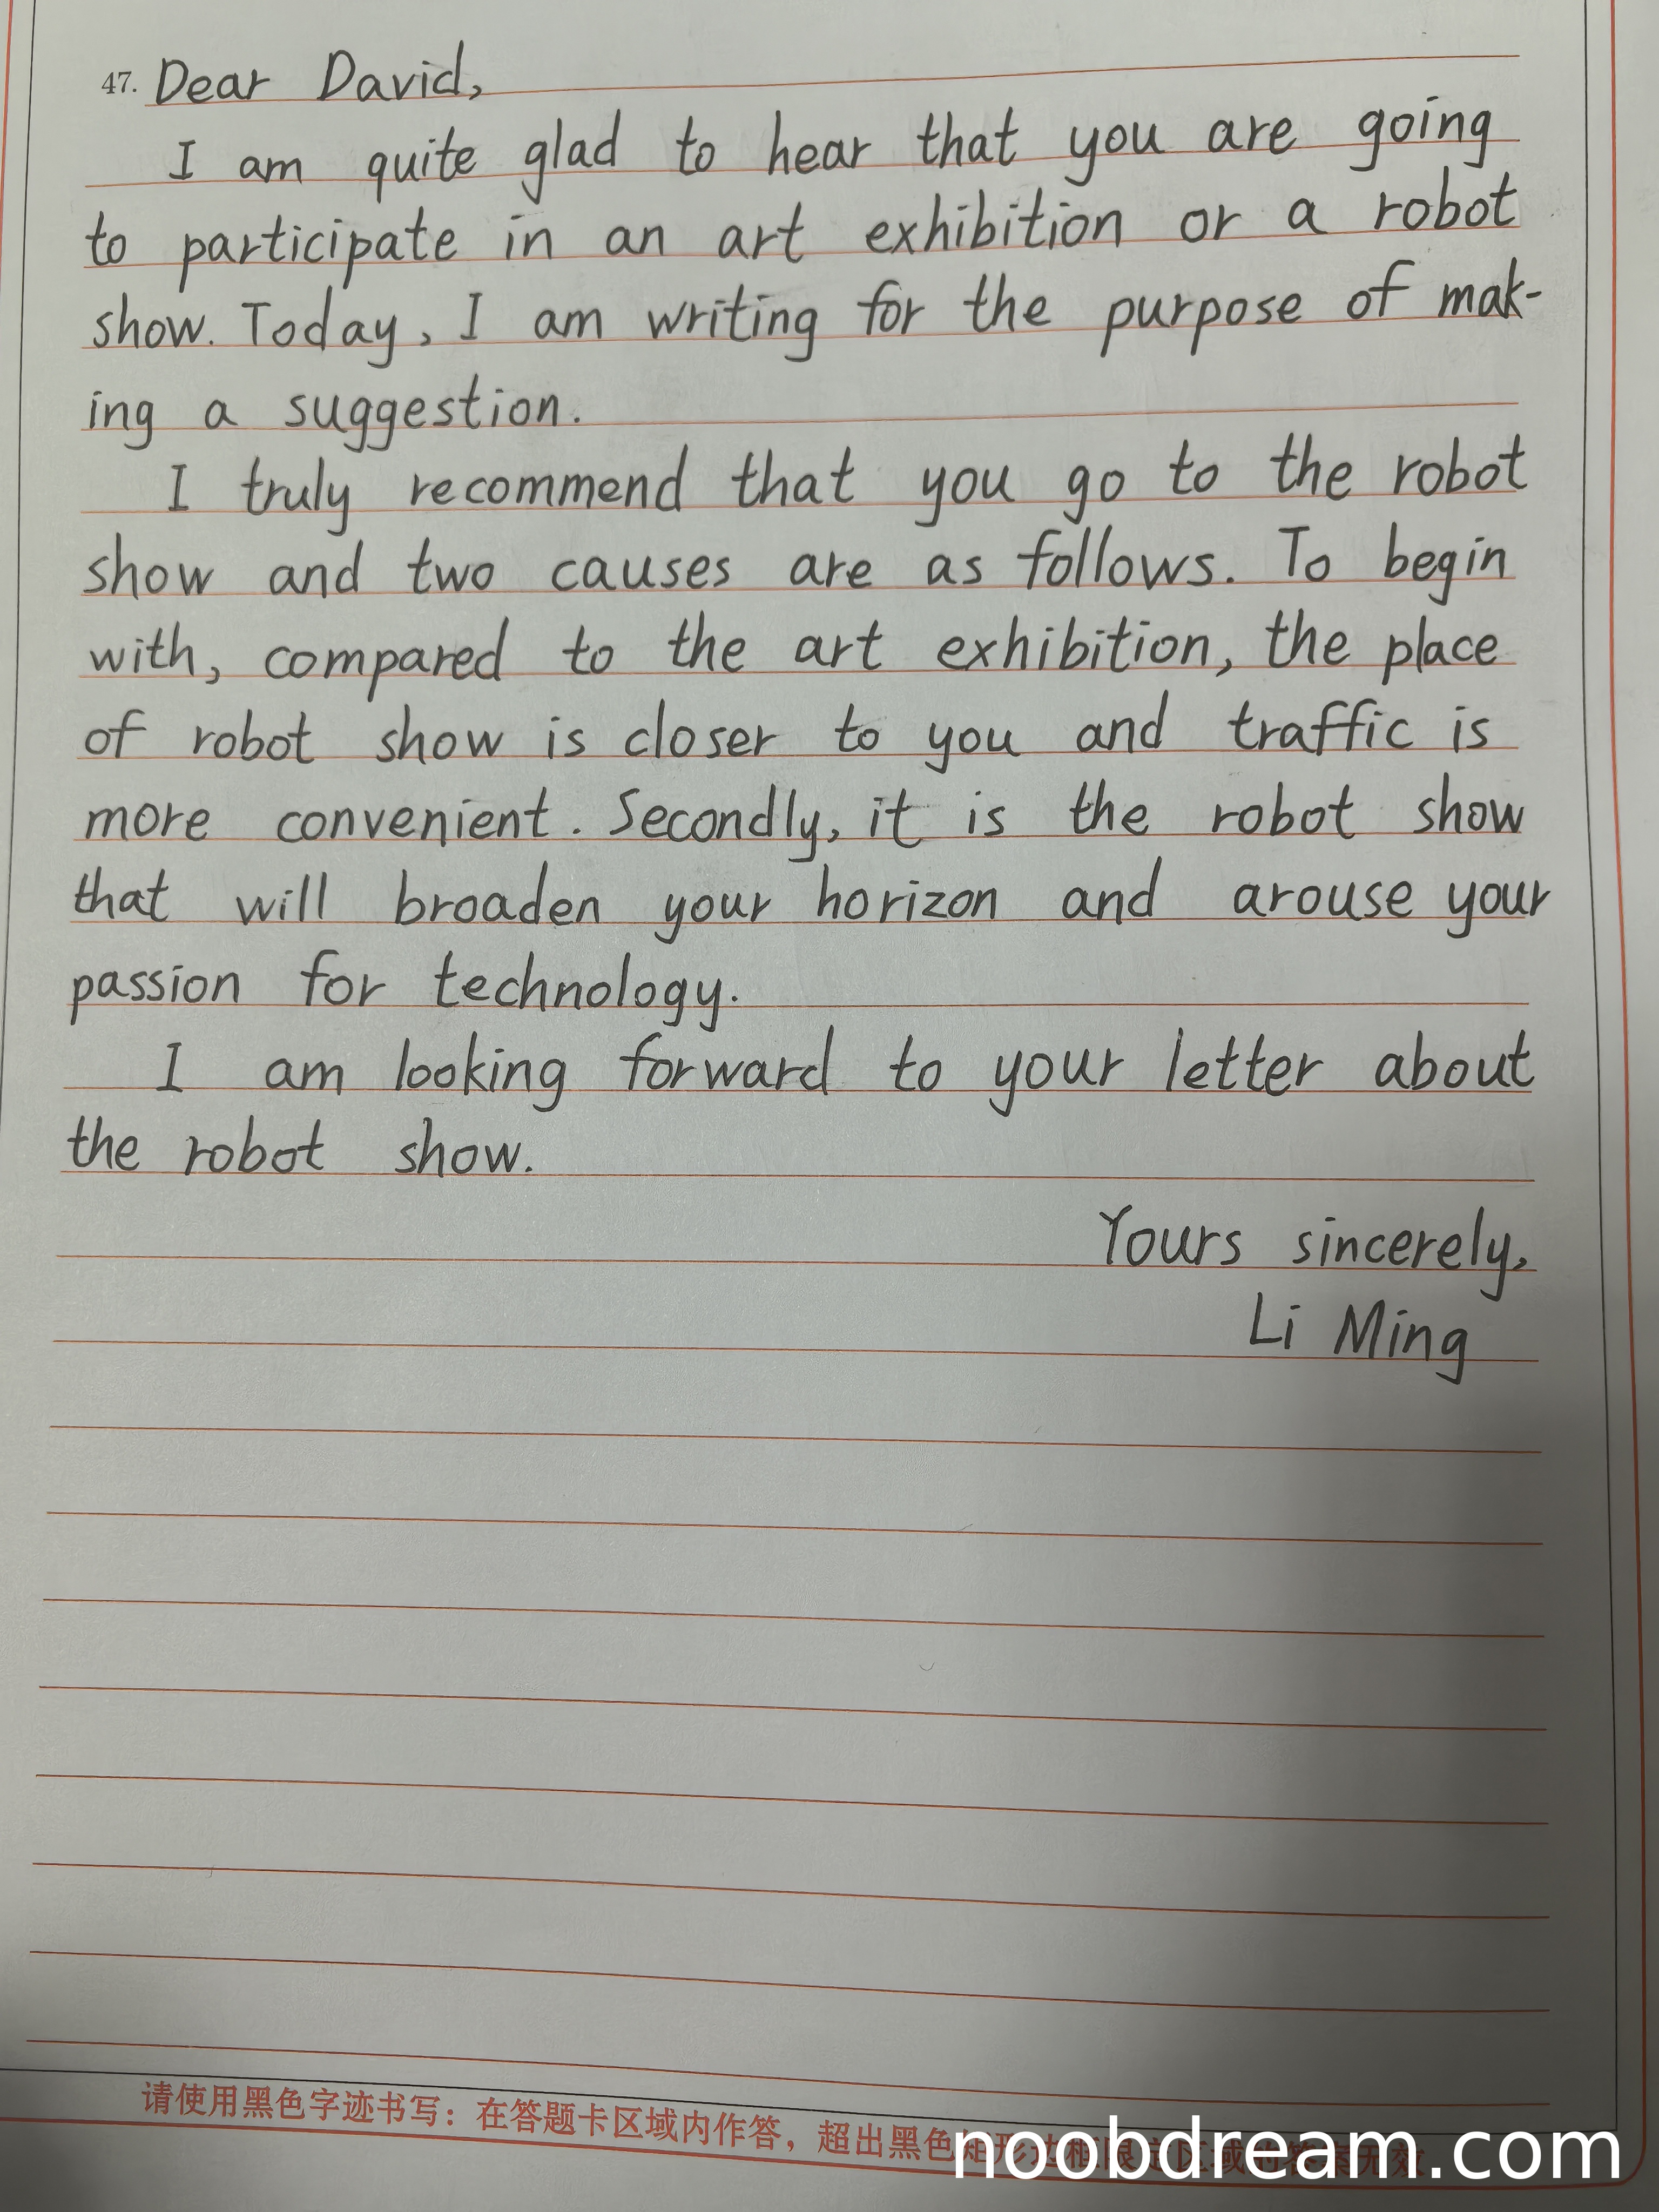 47. Dear David,
I am quite glad to hear that you are going
to participate in an art exhibition or a robot
show. Today, I am writing for the purpose of mak-
ing a suggestion.
I truly recommend that you go to the robot
show and two causes are as follows. To begin
with, compared to the art exhibition, the place
of robot show is closer to you and traffic is
more convenient. Secondly, it is the robot show
that will broaden your horizon and arouse your
passion for technology.
I am looking forward to your letter about
the robot show.
Yours sincerely,
Li Ming
请使用黑色字迹书写：在答题卡区域内作答，超出黑色矩形边框限定区域的答案无效
noobdream.com